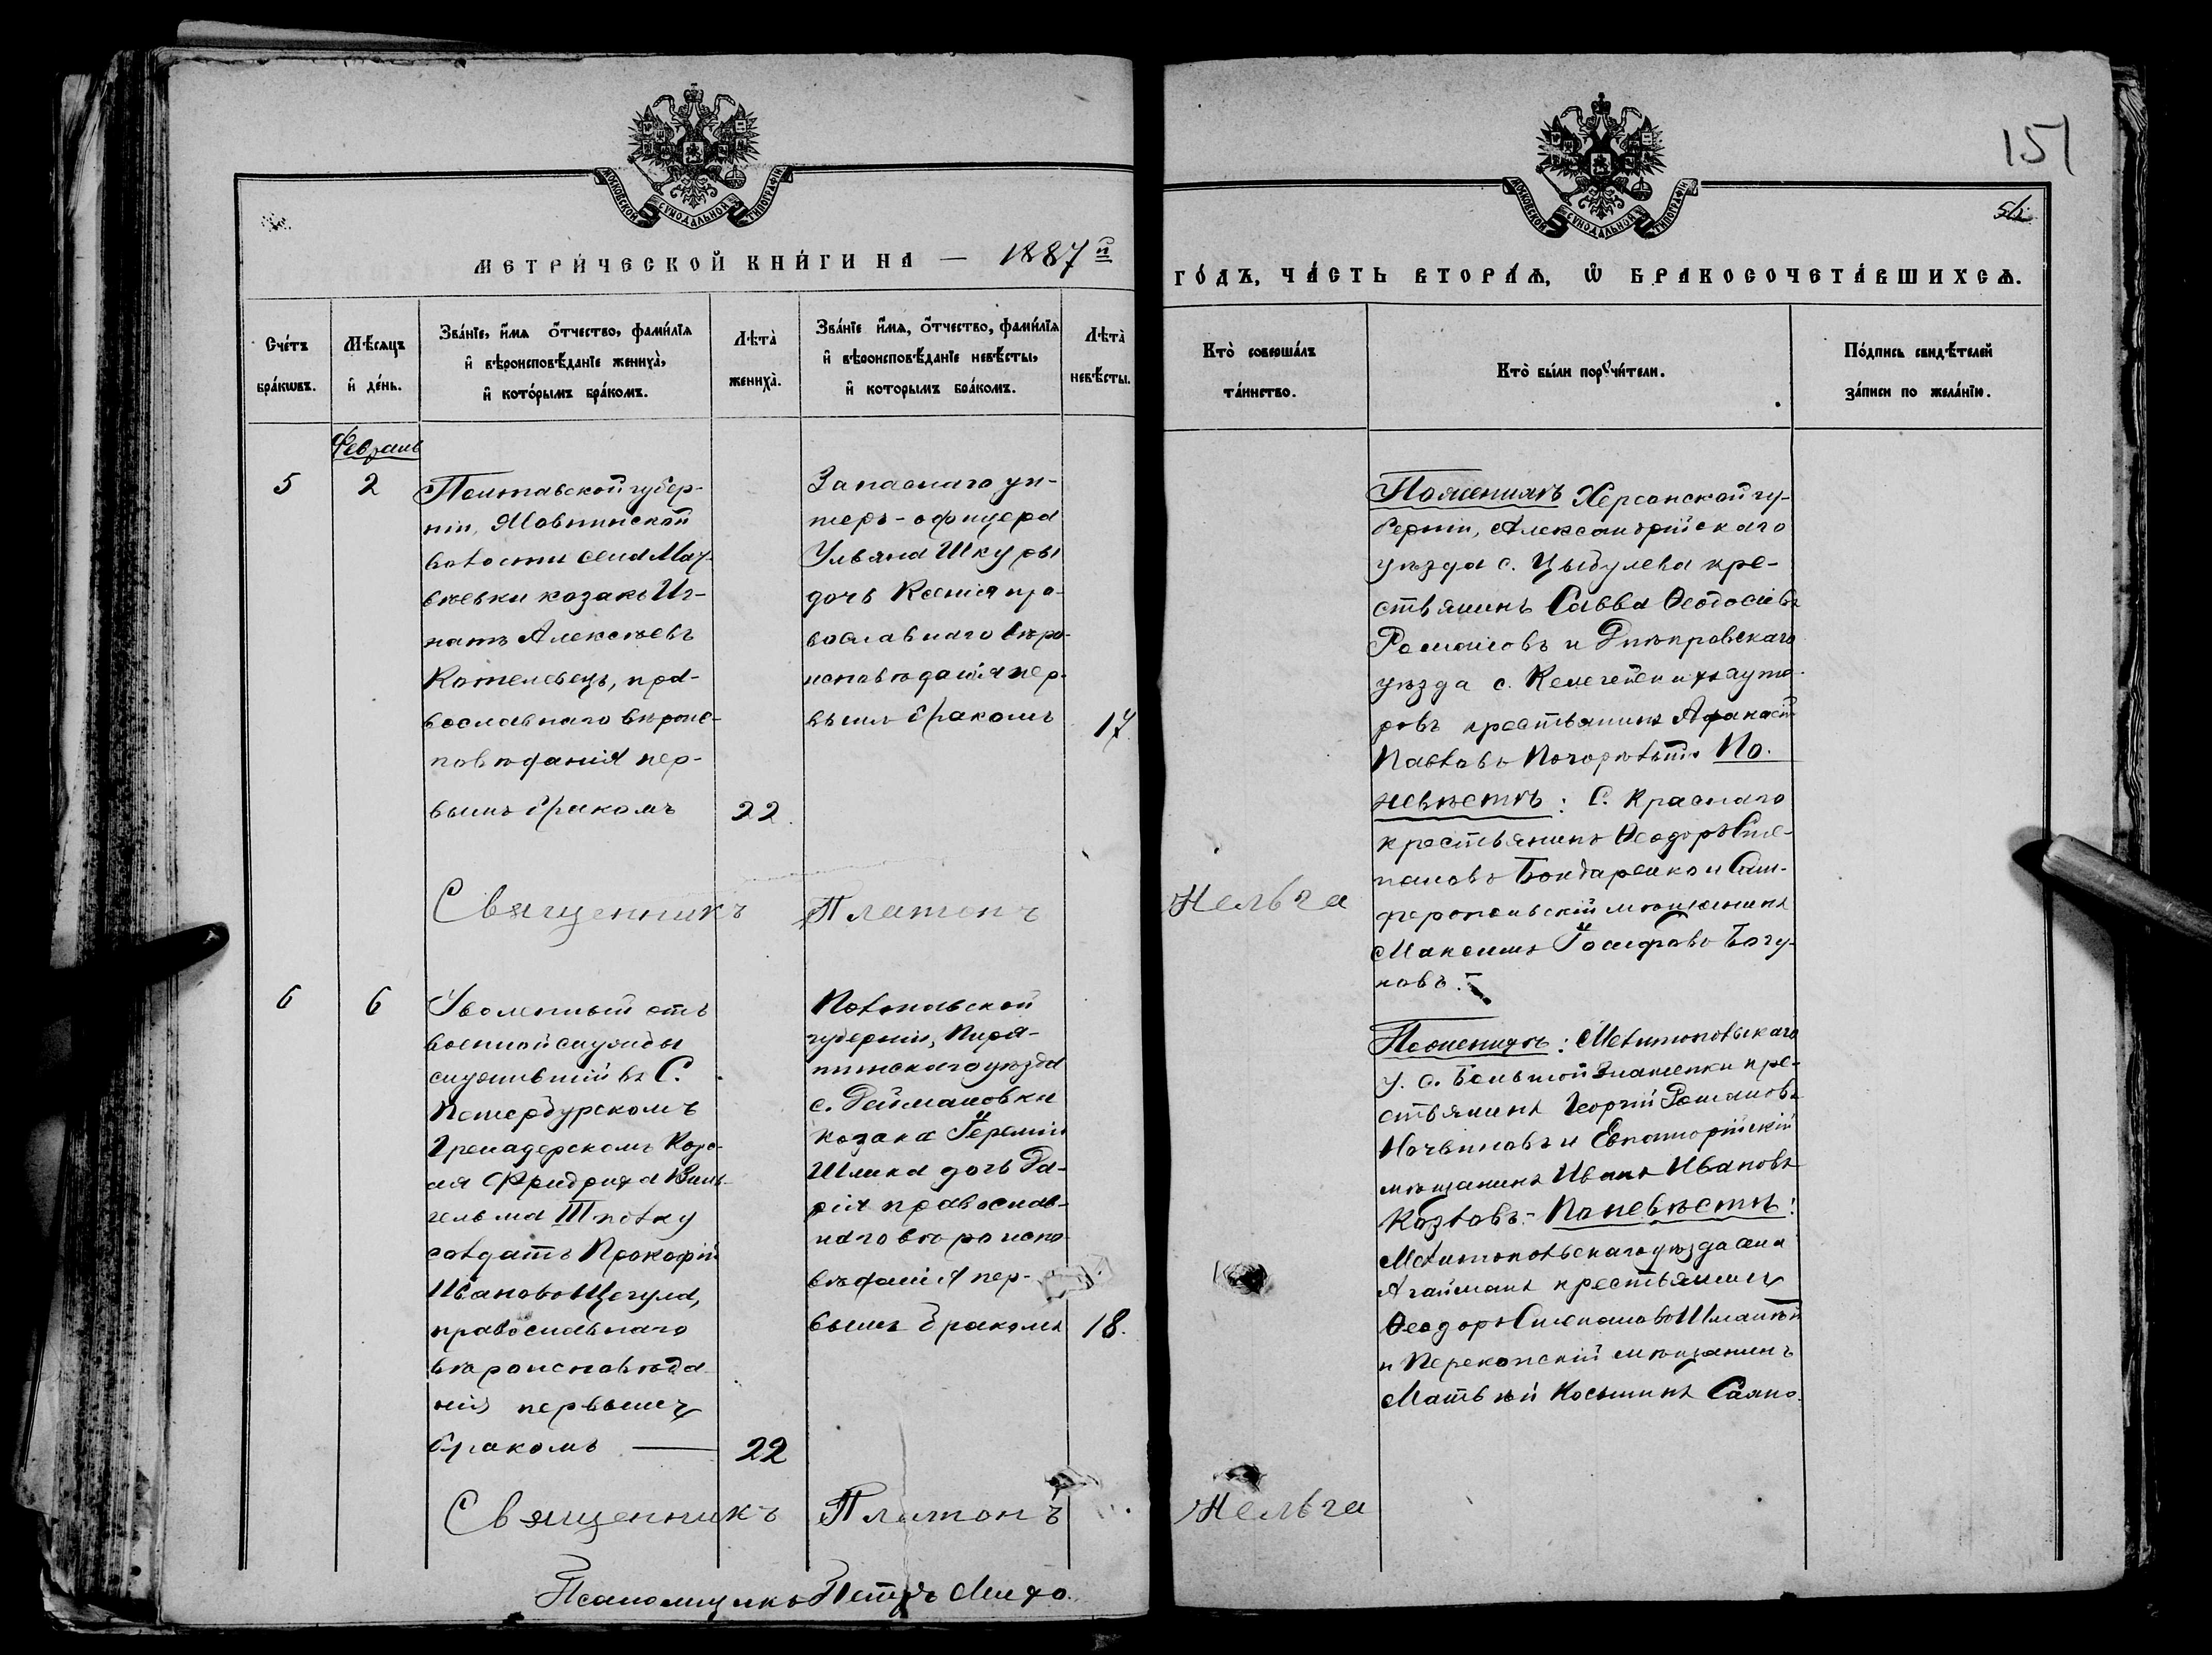 151
МОСКОВСКОЙ СѴНОДАЛЬНОЙ ТИПОГРАФІИ
МОСКОВСКОЙ СѴНОДАЛЬНОЙ ТИПОГРАФІИ
МЕТРИ́ЧЕСКОЙ КНИ́ГИ НА — 1887й
ГО́ДЪ, ЧА́СТЬ ВТОРА́Ѧ, Ѡ҆ БРАКОСОЧЕТА́ВШИХСѦ.
Сче́тъ
бра́кѡвъ.
Мѣ́сѧцъ
и҆ де́нь.
Зва́нїе, и҆́мѧ ѻ҆́тчество, фами́лїѧ
и҆ вѣроисповѣ́данїе жениха̀,
и҆ кото́рымъ бра́комъ.
Лѣта̀
жениха̀.
Зва́нїе и҆́мѧ, ѻ҆́тчество, фами́лїѧ
и҆ вѣроисповѣ́данїе невѣ́сты,
и҆ которымъ бра́комъ.
Лѣта̀
невѣ́сты.
Кто̀ соверша́лъ
та́инство.
Кто̀ бы́ли порꙋчи́тели.
По́дпись свидѣ́телей
за́писи по жела́нїю.
Февраль
5
2
Полтавской губер-
ніи,
волости села Мат-
вѣевки козакъ Иг-
натъ Алексѣевъ
Котелевецъ, пра-
вославнаго вѣроис-
повѣданія пер-
вымъ бракомъ
22.
Запаснаго ун-
теръ-офицера
Ульяна Шкуры
дочь Ксенія пра-
вославнаго вѣро-
исповѣданія пер-
вымъ бракомъ
17
Поженихѣ Херсонской гу-
берніи, Александрійскаго
уѣзда с. Цыбулева кре-
стьянинъ Савва Ѳеодосіевъ
Романовъ и Днѣпровскаго
уѣзда с. Келегейскихъ хуто-
ровъ крестьянинъ Афанасій
Павловъ Погорѣлый По
невѣстѣ: С. Краснаго
крестьянинъ Ѳеодоръ Сте-
пановъ Бондаренко и Сим-
феропольскій мѣщанинъ
Максимъ Іосифовъ Богу-
новъ.
Священникъ Платонъ Жельга
6
6
Уволенный отъ
военной службы
служившій въ С.
Петербурскомъ
Гренадерскомъ Коро-
ля Фридриха Виль-
гельма III полку
солдатъ Прокофій
Ивановъ Щегула,
православнаго
вѣроисповѣда-
нія первымъ
бракомъ —
22
Полтавской
губерніи, Пиря-
тинскаго уѣзда
с. Деймановки
козака Іереміи
Шлика дочь Да-
рія православ-
наго вѣроиспо-
вѣданія пер-
вымъ бракомъ
18.
Поженихѣ: Мелитопольскаго
у. с. Большой Знаменки кре-
стьянинъ Георгій Романовъ
Ночвиновъ и Евпаторійскій
мѣщанинъ Иванъ Ивановъ
Козловъ.- Поневѣстѣ:
Мелитопольскаго уѣзда села
Агаймана крестьянинъ
Ѳеодоръ Степановъ
и Перекопскій мѣщанинъ
Матвѣй Косьминъ Саяно.
Священникъ Платонъ Жельга
Псаломщикъ Петръ Михо.